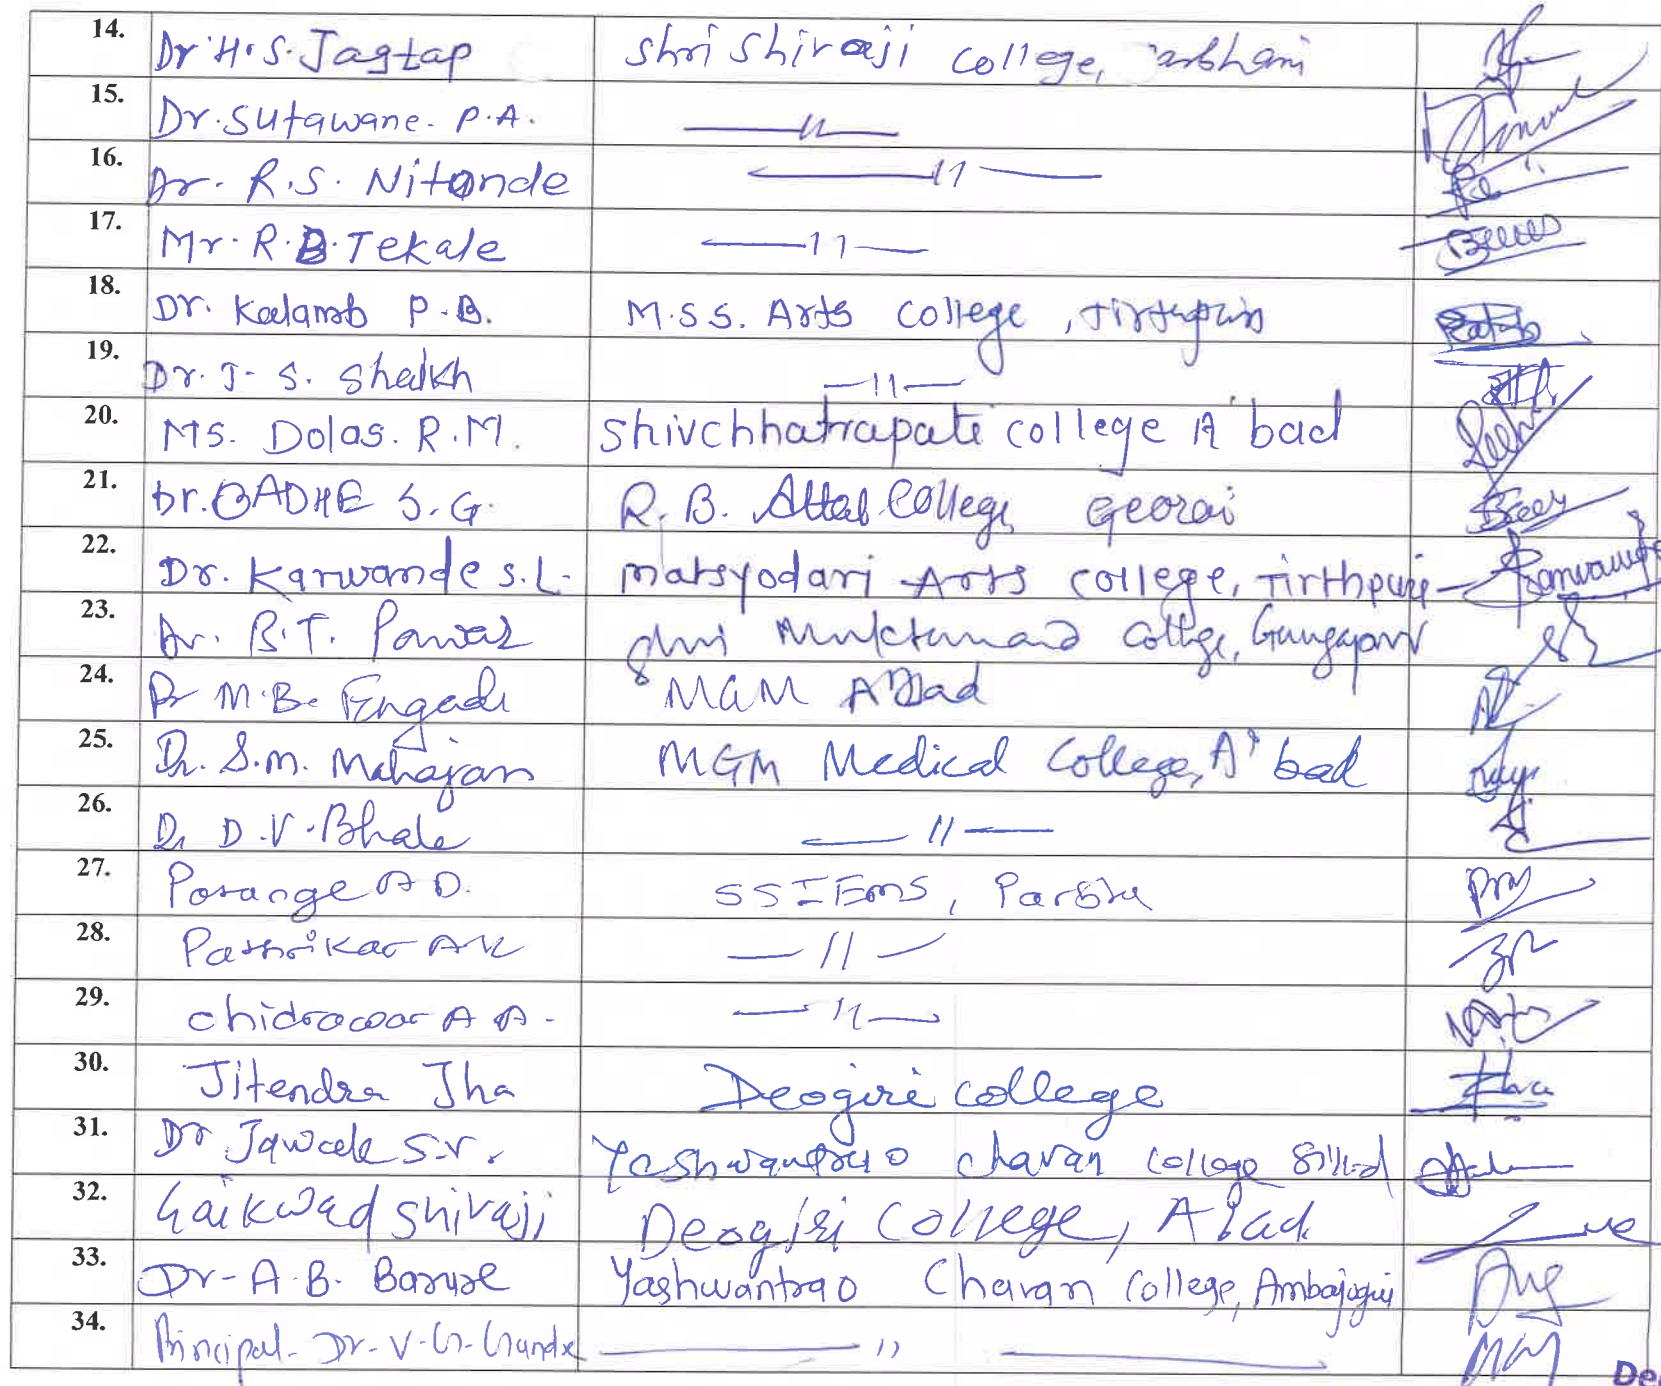 14. Dr. H.S. Jagtap Shri Shivaji College, arbhani
15. Dr. Sutawane. P.A. —11—
16. Dr. R.S. Nitonde —11—
17. Mr. R.B. Tekale —11—
18. Dr. Kalamb P.B. M.S.S. Arts College, Tirthpuri
19. Dr. J. S. Shaikh —11—
20. Ms. Dolas. R.M. Shivchhatrapati College A'bad
21. Dr. BADHE S.G. R.B. Attal College Georai
22. Dr. Karwande S.L. Matsyodari Arts College, Tirthpuri
23. Dr. B.T. Pawar Shri Muktanand College, Gangapur
24. Dr M.B. Engade MGM A'Bad
25. Dr. S.M. Mahajan MGM Medical College, A'bad
26. Dr D.V. Bhale —11—
27. Porange A D. SSIEMS, Parbha
28. Pathrikar A K —11—
29. Chidrawar A A. —11—
30. Jitendra Jha Deogiri College
31. Dr Jawale S.V. Yashwantrao Chavan College Sillod
32. Gaikwad Shivaji Deogiri College, A'bad
33. Dr. A.B. Barure Yashwantrao Chavan College, Ambajogai
34. Principal Dr. V. G. —11—
De